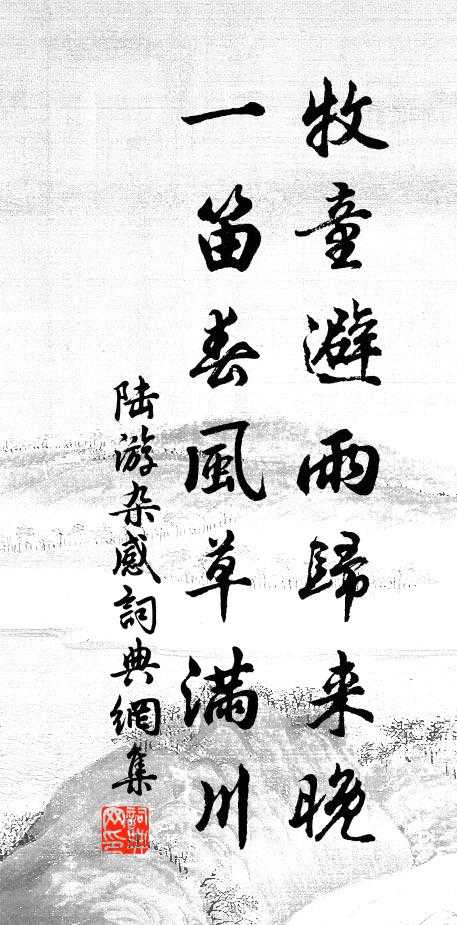 牧童避雨歸来晚
一笛春風草满川
陆游杂感詞典網集
詞典网印